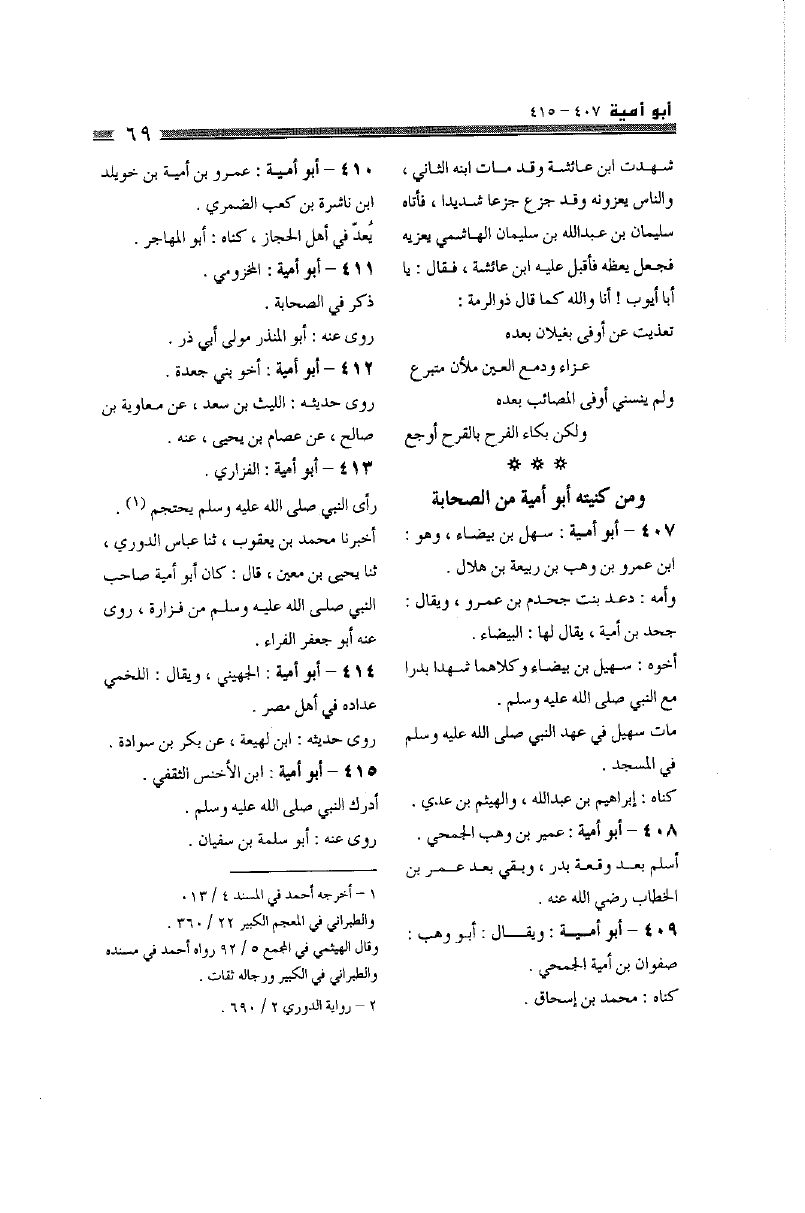 أبو أمية ٤٠٧ - ٤١٥
٦٩
شهدت ابن عائشة وقد مات ابنه الثاني ،
والناس يعزونه وقد جزع جزعا شديدا ، فأتاه
سليمان بن عبدالله بن سليمان الهاشمي يعزيه
فجعل يعظه فأقبل عليه ابن عائشة ، فقال : يا
أبا أيوب ! أنا والله كما قال ذوالرمة :
تعذيت عن أوفى بغيلان بعده
عزاء ودمع العين ملأن متبرع
ولم ينسني أوفى المصائب بعده
ولكن بكاء الفرح بالقرح أوجع
* * *
ومن كنيته أبو أمية من الصحابة
٤٠٧ - أبو أمية : سهل بن بيضاء ، وهو :
ابن عمرو بن وهب بن ربيعة بن هلال .
وأمه : دعد بنت جحدم بن عمرو ، ويقال :
جحد بن أمية ، يقال لها : البيضاء .
أخوه : سهيل بن بيضاء وكلاهما شهدا بدرا
مع النبي صلى الله عليه وسلم .
مات سهيل في عهد النبي صلى الله عليه وسلم
في المسجد .
كناه : إبراهيم بن عبدالله ، والهيثم بن عدي .
٤٠٨ - أبو أمية : عمير بن وهب الجمحي .
أسلم بعد وقعة بدر ، وبقي بعد عمر بن
الخطاب رضي الله عنه .
٤٠٩ - أبو أمية : ويقال : أبو وهب :
صفوان بن أمية الجمحي .
كناه : محمد بن إسحاق .
٤١٠ - أبو أمية : عمرو بن أمية بن خويلد
ابن ناشرة بن كعب الضمري .
يُعدّ في أهل الحجاز ، كناه : أبو المهاجر .
٤١١ - أبو أمية : المخزومي .
ذكر في الصحابة .
روى عنه : أبو المنذر مولى أبي ذر .
٤١٢ - أبو أمية : أخو بني جعدة .
روى حديثه : الليث بن سعد ، عن معاوية بن
صالح ، عن عصام بن يحيى ، عنه .
٤١٣ - أبو أمية : الفزاري .
رأى النبي صلى الله عليه وسلم يحتجم (١) .
أخبرنا محمد بن يعقوب ، ثنا عباس الدوري ،
ثنا يحيى بن معين ، قال : كان أبو أمية صاحب
النبي صلى الله عليه وسلم من فزارة ، روى
عنه أبو جعفر الفراء .
٤١٤ - أبو أمية : الجهيني ، ويقال : اللخمي
عداده في أهل مصر .
روى حديثه : ابن لهيعة ، عن بكر بن سوادة .
٤١٥ - أبو أمية : ابن الأخنس الثقفي .
أدرك النبي صلى الله عليه وسلم .
روى عنه : أبو سلمة بن سفيان .
١ - أخرجه أحمد في المسند ٤ / ٠١٣
والطبراني في المعجم الكبير ٢٢ / ٣٦٠ .
وقال الهيثمي في المجمع ٥ / ٩٢ رواه أحمد في مسنده
والطبراني في الكبير ورجاله ثقات .
٢ - رواية الدوري ٢ / ٦٩٠ .